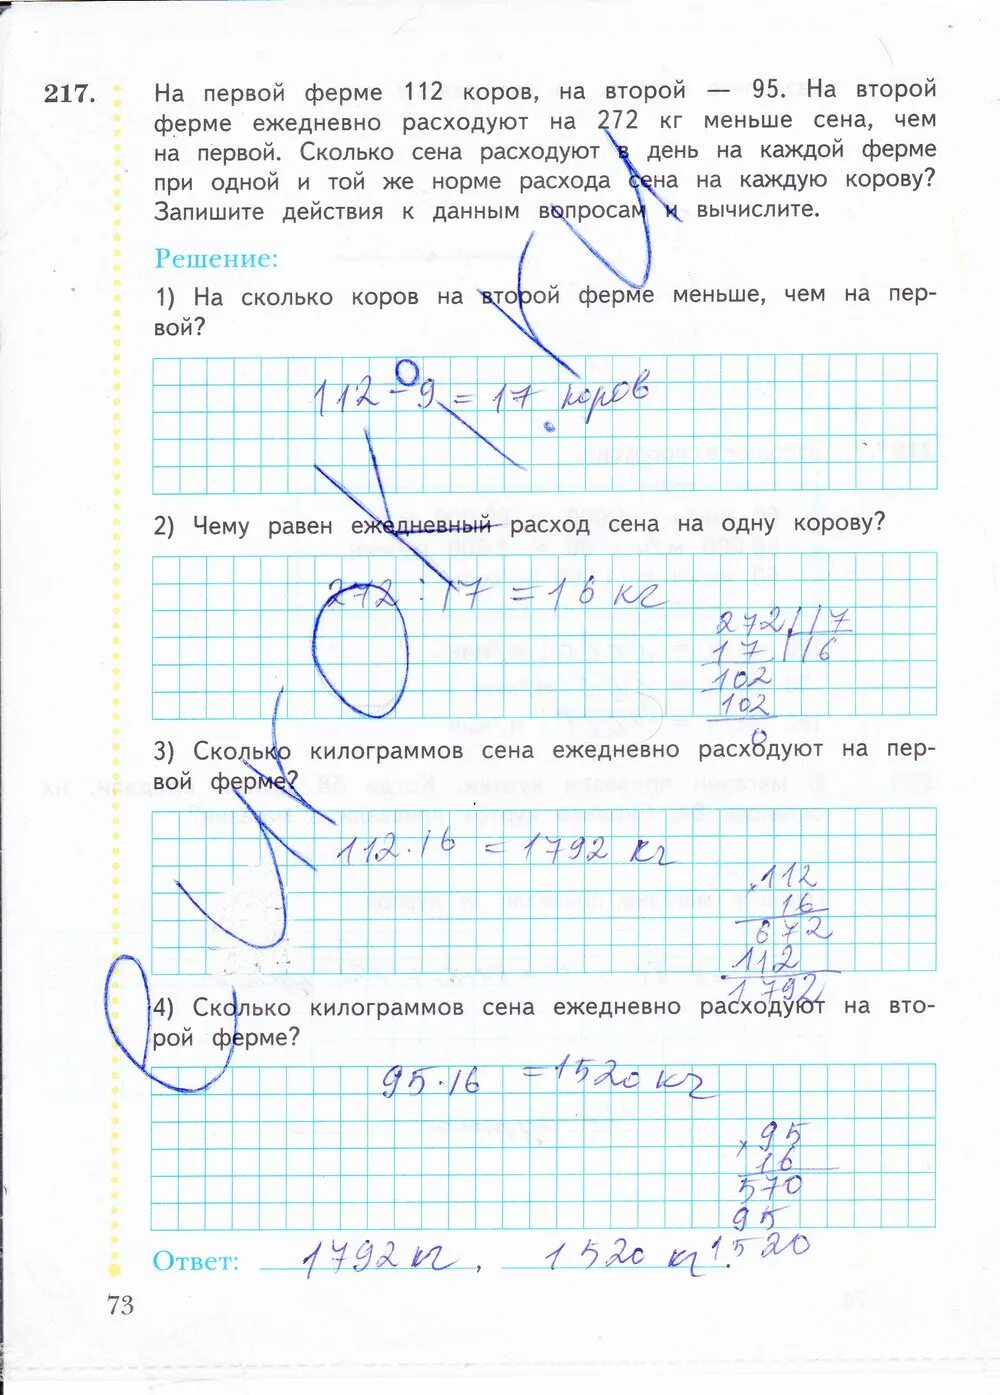 217. На первой ферме 112 коров, на второй — 95. На второй
ферме ежедневно расходуют на 272 кг меньше сена, чем
на первой. Сколько сена расходуют в день на каждой ферме
при одной и той же норме расхода сена на каждую корову?
Запишите действия к данным вопросам и вычислите.
Решение:
1) На сколько коров на второй ферме меньше, чем на пер-
вой?
112 - 9 = 17 коров
2) Чему равен ежедневный расход сена на одну корову?
272 : 17 = 16 кг
272 17
17 16
102
102
0
3) Сколько килограммов сена ежедневно расходуют на пер-
вой ферме?
112 · 16 = 1792 кг
×112
16
672
112
1792
4) Сколько килограммов сена ежедневно расходуют на вто-
рой ферме?
95 · 16 = 1520 кг
×95
16
570
95
1520
Ответ: 1792 кг, 1520 кг.
73